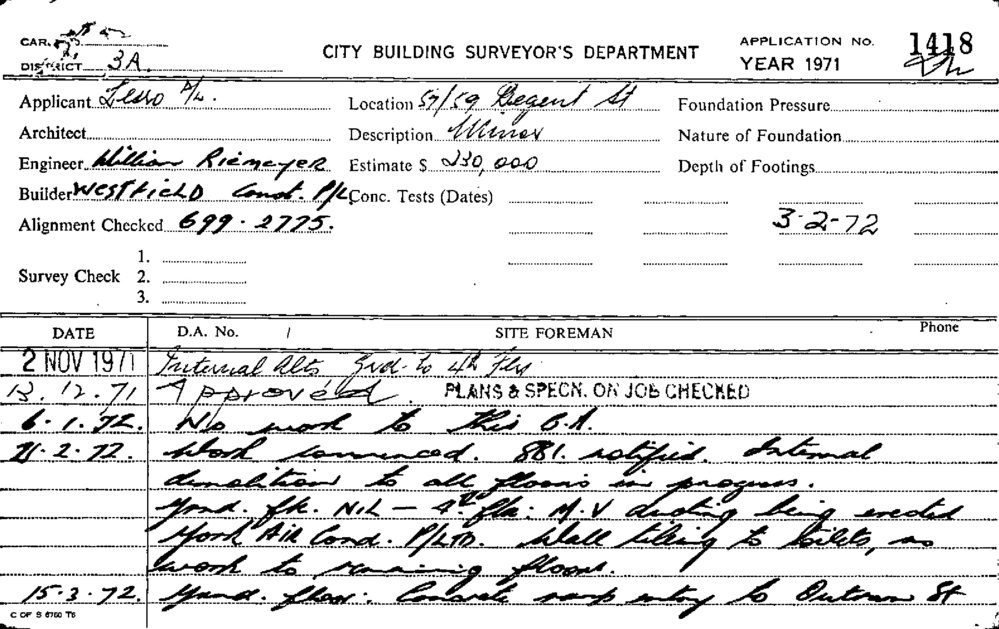 CAR.
DISTRICT 3A.
CITY BUILDING SURVEYOR'S DEPARTMENT
APPLICATION No. 1418
YEAR 1971
Applicant P/L.
Location 57/59 Regent St
Foundation Pressure
Architect
Description Minor
Nature of Foundation
Engineer William Riemeyer
Estimate $ 230,000
Depth of Footings
Builder WESTFIELD Const. P/L
Conc. Tests (Dates)
Alignment Checked 699-2775.
3-2-72
Survey Check 1.
2.
3.
DATE D.A. No. / SITE FOREMAN Phone
2 NOV 1971 Internal Alts Grd. to 4th Flrs
13.12.71 Approved. PLANS & SPECN. ON JOB CHECKED
6.1.72. No work to this B.A.
21.2.72. Work commenced. 881. notified. Internal
demolition to all floors in progress.
Grnd. flr. NIL — 4th flr: M.V ducting being erected
York Air Cond. P/LTD. Wall tiling to toilets, no
work to remaining floors.
15.3.72. Grnd. floor: Concrete ramp entry to Outram St
C OF S 6760 T5